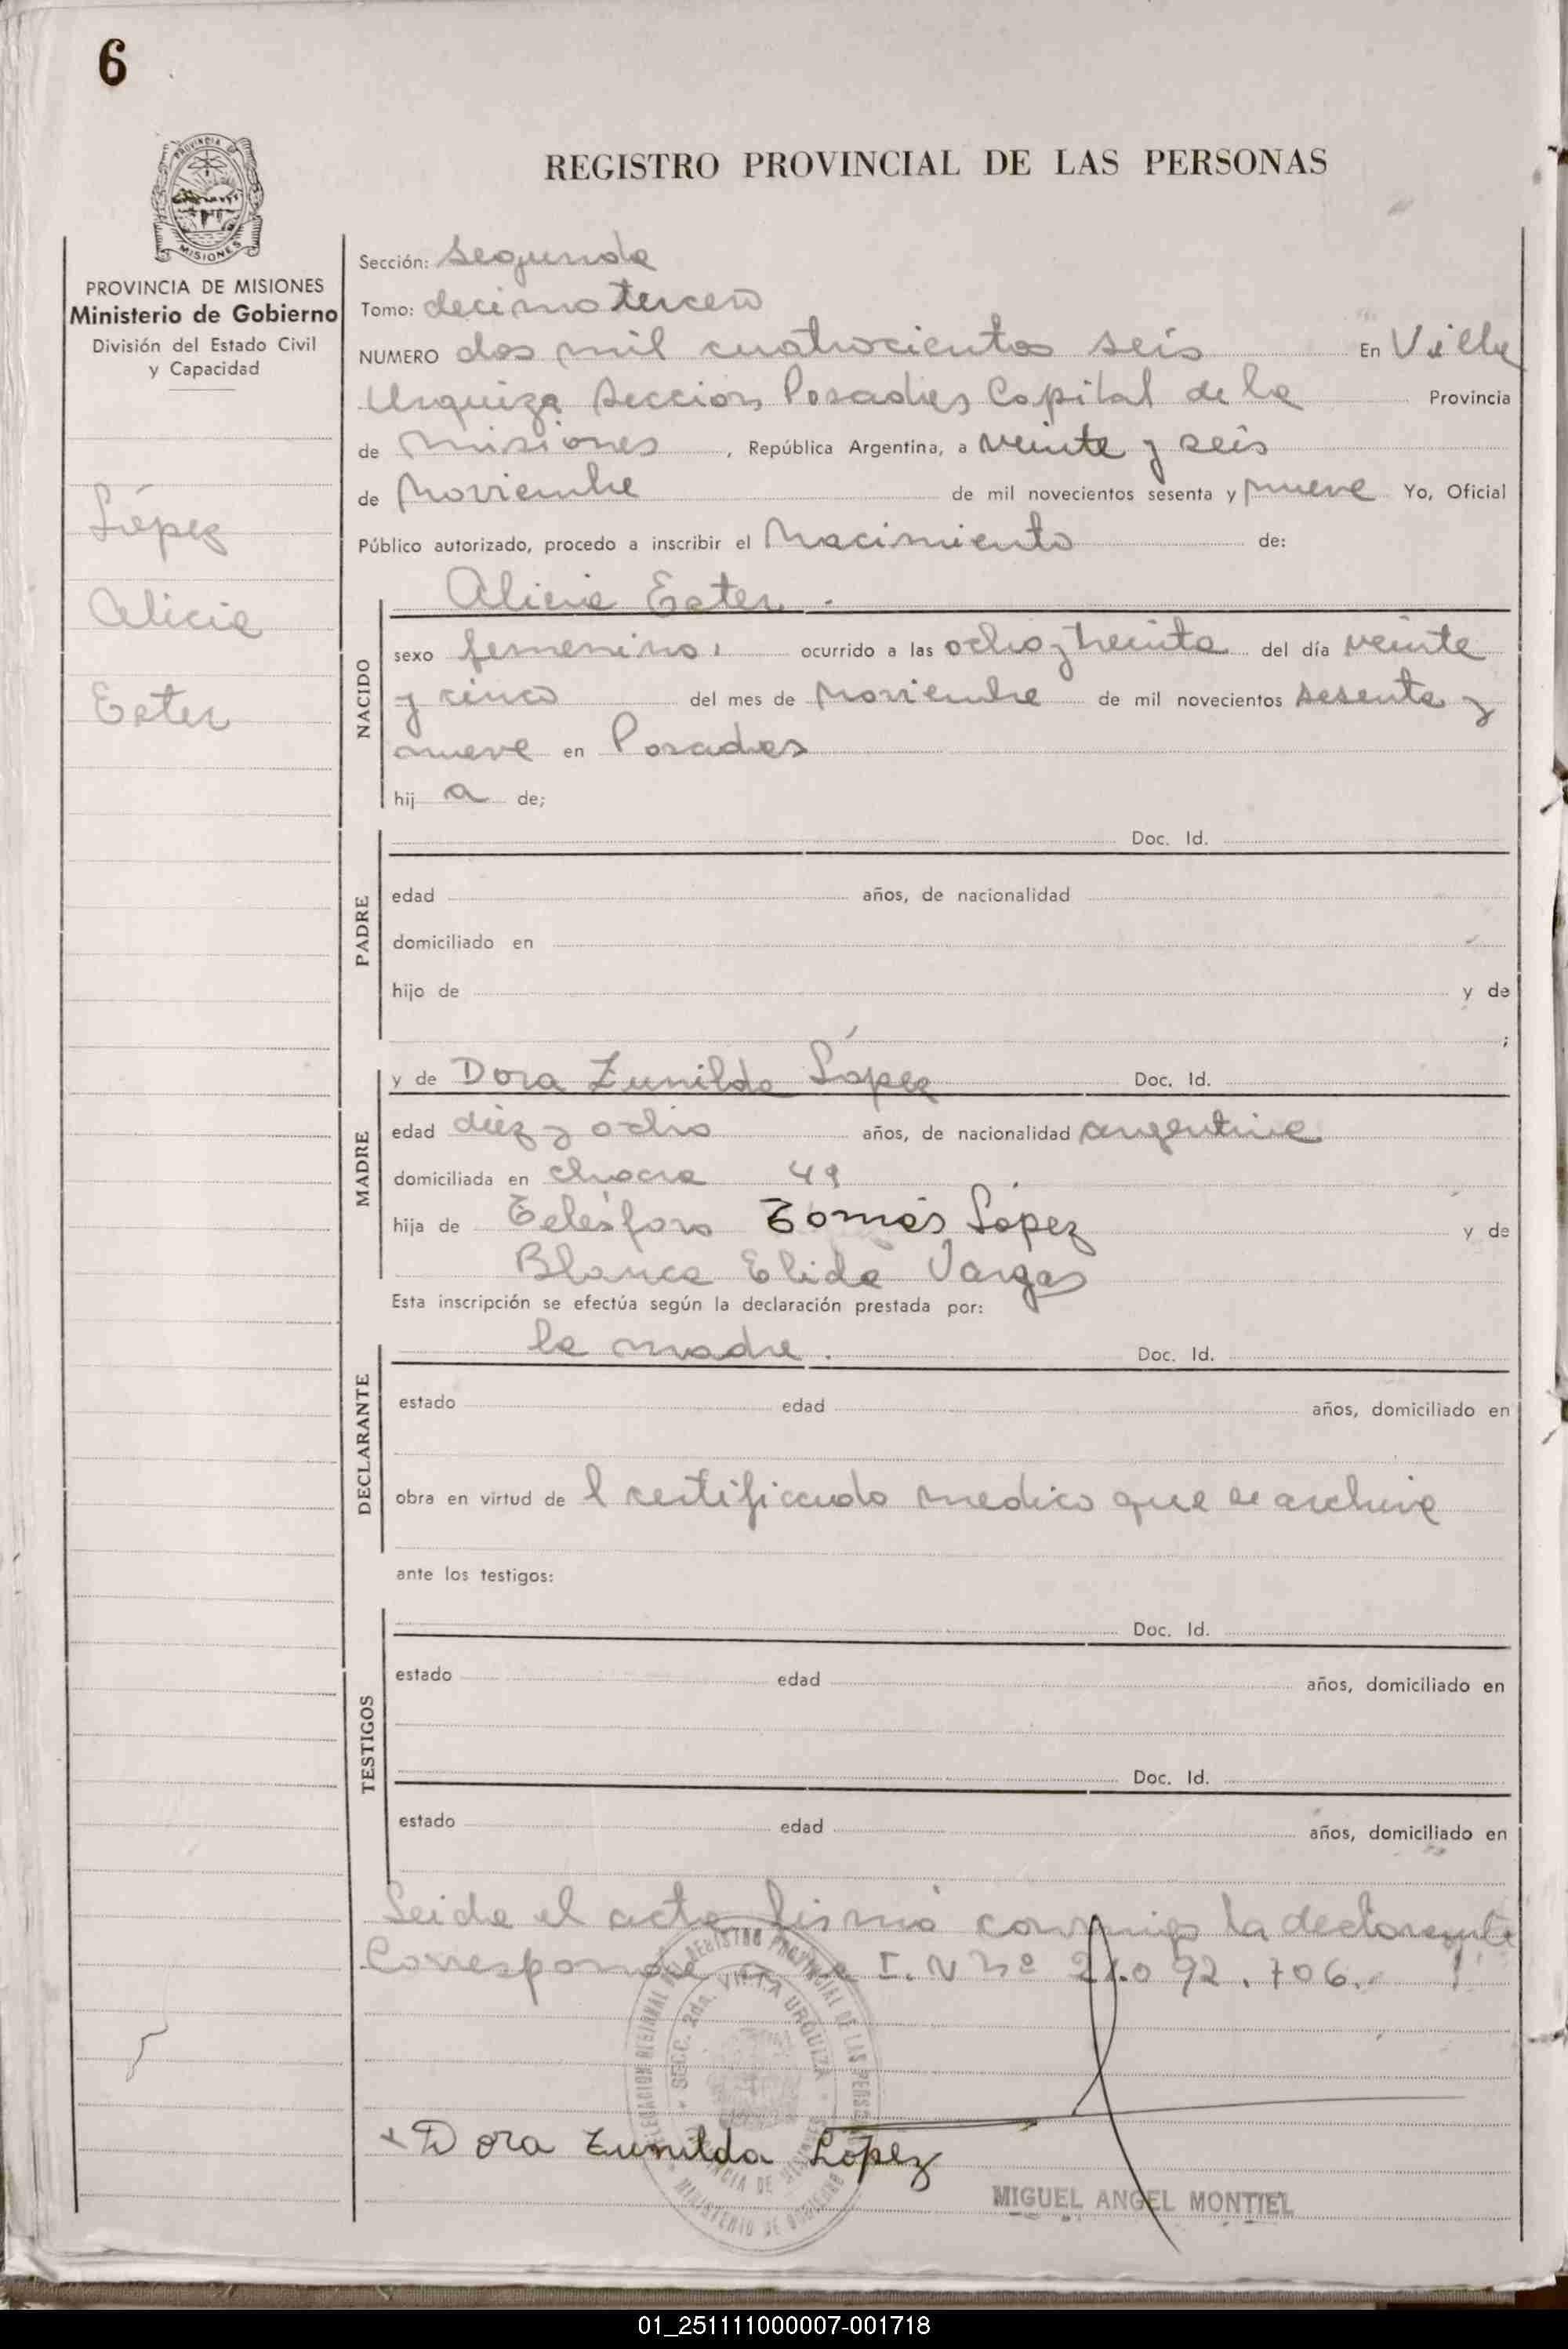 6
PROVINCIA DE
MISIONES
PROVINCIA DE MISIONES
Ministerio de Gobierno
División del Estado Civil
y Capacidad
López
Alicia
Ester
REGISTRO PROVINCIAL DE LAS PERSONAS
Sección: segunda
Tomo: decimo tercero
NUMERO dos mil cuatrocientos seis En Villa
Urquiza Seccion Posadas Capital de la Provincia
de Misiones, República Argentina, a veinte y seis
de Noviembre de mil novecientos sesenta y nueve Yo, Oficial
Público autorizado, procedo a inscribir el Nacimiento de:
Alicia Ester.
NACIDO
sexo femenino, ocurrido a las ocho y treinta del día veinte
y cinco del mes de Noviembre de mil novecientos sesenta y
nueve en Posadas
hij a de;
PADRE
Doc. Id.
edad años, de nacionalidad
domiciliado en
hijo de y de
;
MADRE
y de Dora Zunilda López Doc. Id.
edad diez y ocho años, de nacionalidad argentina
domiciliada en chacra 49
hija de Telésforo Tomás López y de
Blanca Elida Vargas
Esta inscripción se efectúa según la declaración prestada por:
DECLARANTE
la madre. Doc. Id.
estado edad años, domiciliado en
obra en virtud de l certificado medico que se archiva
ante los testigos:
TESTIGOS
Doc. Id.
estado edad años, domiciliado en
Doc. Id.
estado edad años, domiciliado en
Leida el acta firmó conmigo la declarante
Corresponde a I. N Nº 21.092.706.-
DELEGACION REGIONAL DEL REGISTRO PROVINCIAL DE LAS PERSONAS
SECC. 2da. VILLA URQUIZA
PROVINCIA DE MISIONES
MINISTERIO DE GOBIERNO
Dora Zunilda López
MIGUEL ANGEL MONTIEL
01_251111000007-001718